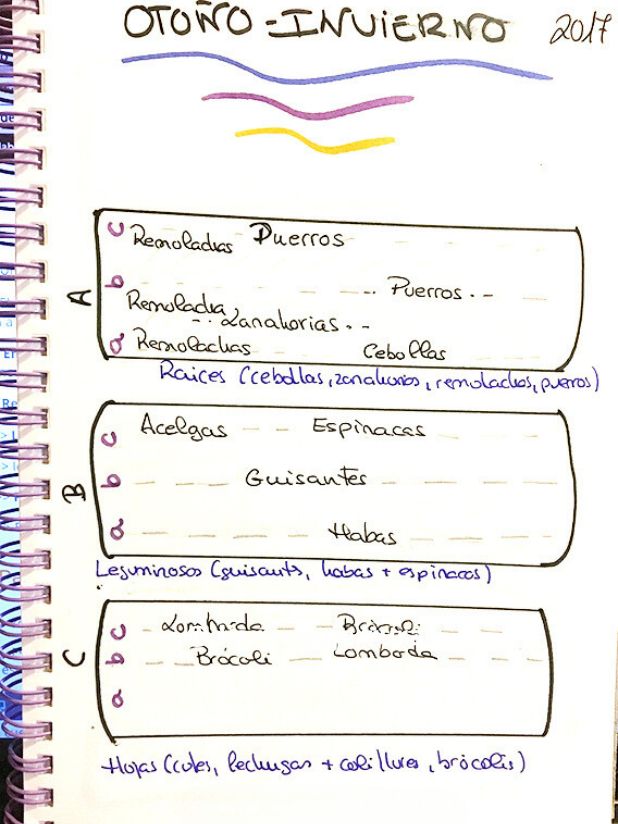 OTOÑO-INVIERNO 2017
A
c Remolachas Puerros
b Puerros
Remolacha
Zanahorias
a Remolachas Cebollas
Raices (cebollas, zanahorias, remolachas, puerros)
B
c Acelgas Espinacas
b Guisantes
a Habas
Leguminosas (guisants, habas + espinacas)
C
c Lombarda
b Brócoli Lombarda
a
Hojas (coles, lechugas + coliflores, brócolis)